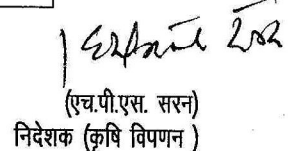 (एच.पी.एस. सरन)
निदेशक (कृषि विपणन )